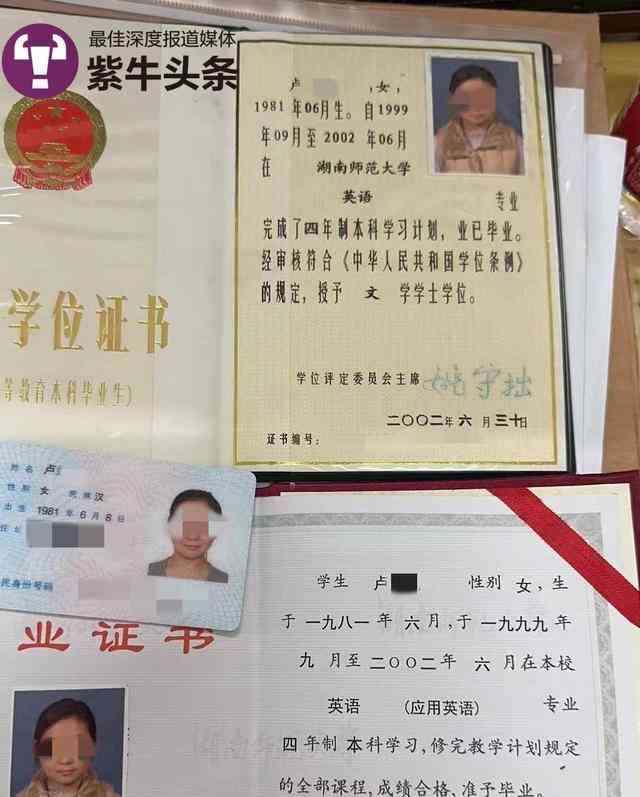 最佳深度报道媒体
紫牛头条
卢 ,女,
1981 年06月生。自1999
年09月至 2002 年06月
在 湖南师范大学
英语 专业
完成了四年制本科学习计划，业已毕业。
经审核符合《中华人民共和国学位条例》
的规定，授予 文 学学士学位。
学位评定委员会主席
姚守拙
二〇〇二年 六 月 三十日
证书编号：
学位证书
等教育本科毕业生）
姓名 卢
性别 女 民族 汉
出生 1981 年 6 月 8 日
住址
民身份号码
业证书
学生 卢 性别 女，生
于 一九八一年 六月，于 一九九九年
九 月至二〇〇二年 六 月在本校
英语 （应用英语） 专业
四年制 本科学习，修完教学计划规定
的全部课程，成绩合格，准予毕业。